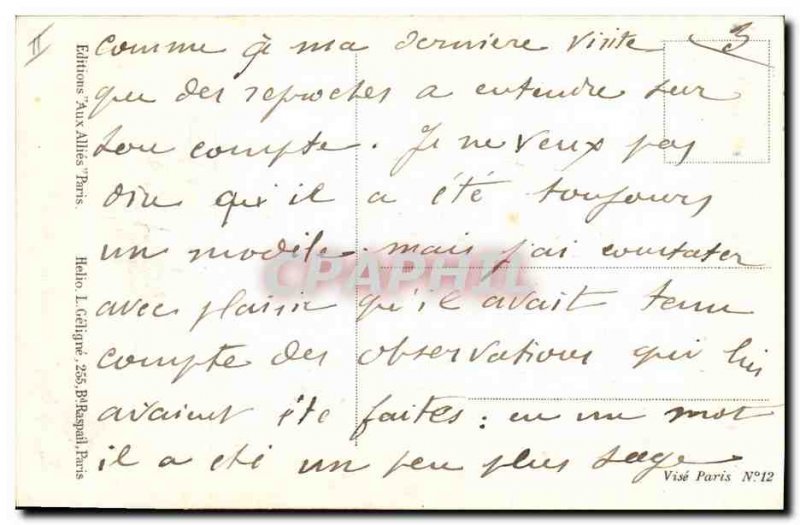 II
3
comme à ma derniere visite
que des reproches a entendre sur
son compte. Je ne veux pas
dire qu'il a été toujours
un modile. mais j'ai constater
avec plaisir qu'il avait tenu
compte des observations qui lui
avaient été faites : en un mot
il a été un peu plus sage
Editions "Aux Alliés" Paris.
Helio. L. Géligné, 255, Bd Raspail, Paris
Visé Paris N°12
CPAPHIL